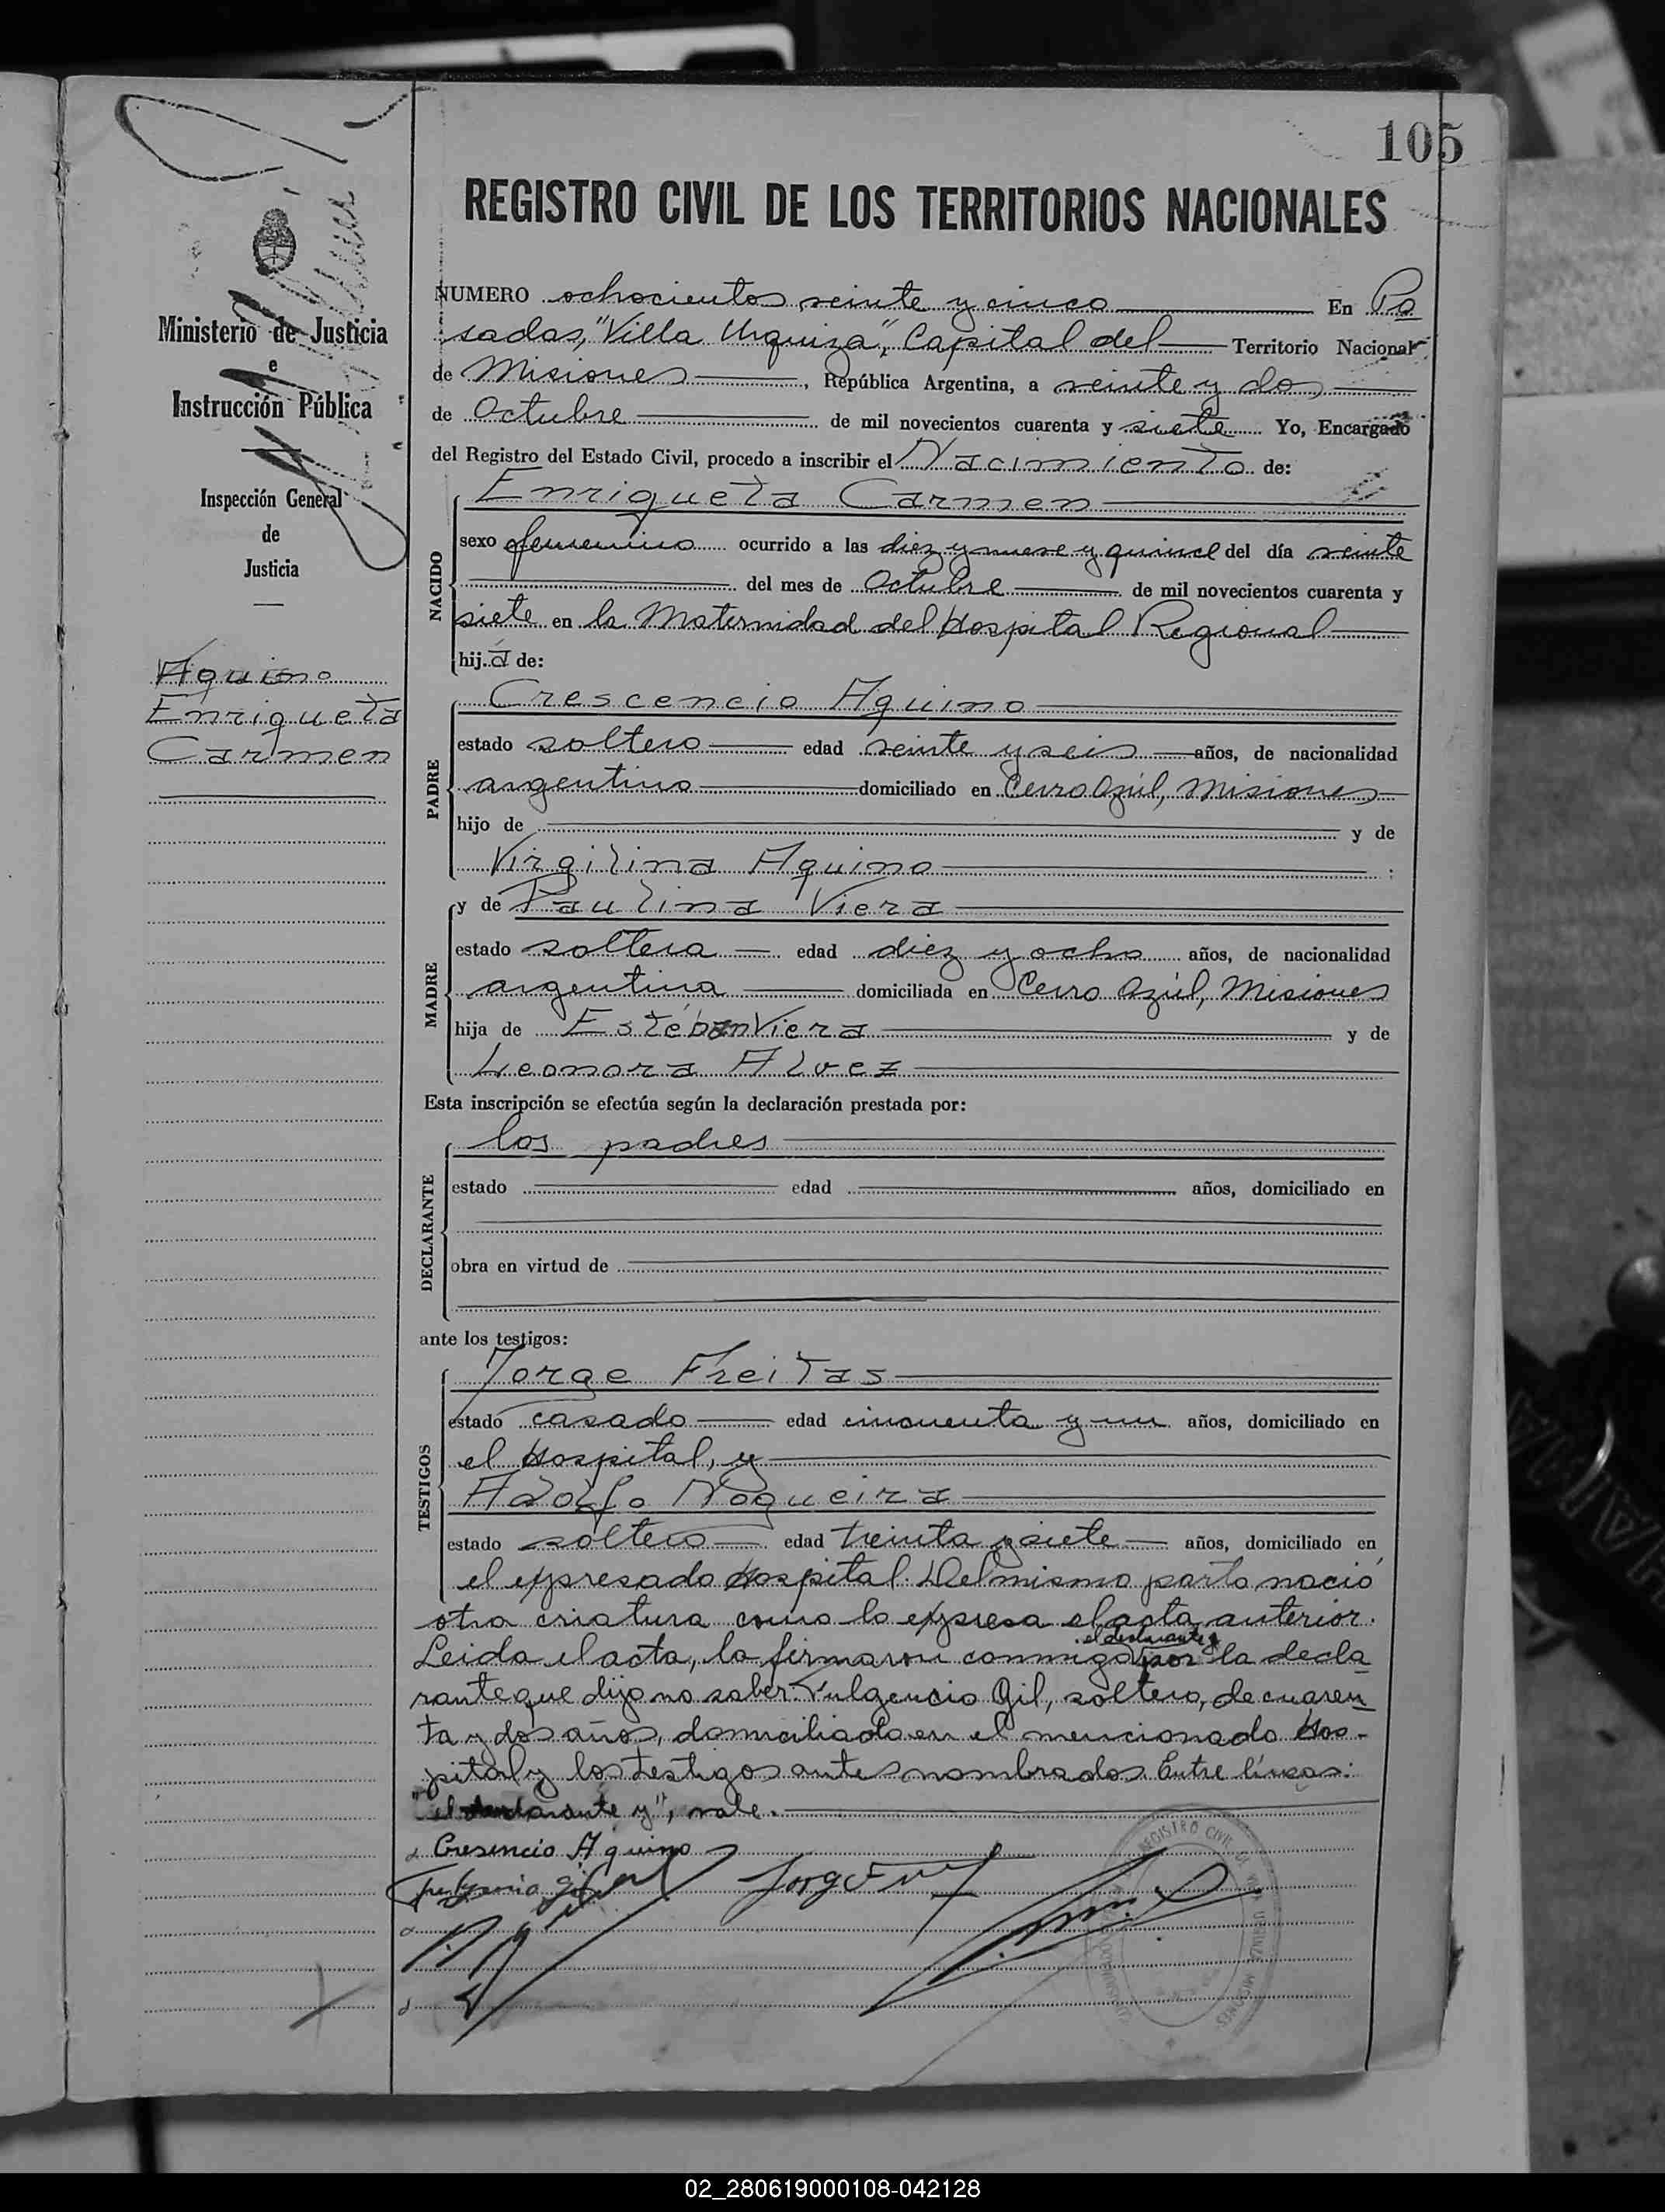 105
REGISTRO CIVIL DE LOS TERRITORIOS NACIONALES
Ministerio de Justicia
e
Instrucción Pública
Inspección General
de
Justicia
Aquino
Enriqueta
Carmen
NUMERO ochocientos veinte y cinco En Po
sadas, "Villa Urquiza", Capital del Territorio Nacional
de Misiones, República Argentina, a veinte y dos
de Octubre de mil novecientos cuarenta y siete Yo, Encargado
del Registro del Estado Civil, procedo a inscribir el Nacimiento de:
Enriqueta Carmen
NACIDO
sexo femenino ocurrido a las diez y nueve y quince del día veinte
del mes de Octubre de mil novecientos cuarenta y
siete en la Maternidad del Hospital Regional
hij.a de:
PADRE
Crescencio Aquino
estado soltero edad veinte y seis años, de nacionalidad
argentino domiciliado en Cerro Azúl, Misiones
hijo de y de
Virgilina Aquino :
MADRE
y de Paulina Viera
estado soltera edad diez y ocho años, de nacionalidad
argentina domiciliada en Cerro Azúl, Misiones
hija de Estéban Viera y de
Leonora Alvez
Esta inscripción se efectúa según la declaración prestada por:
DECLARANTE
los padres
estado edad años, domiciliado en
obra en virtud de
ante los testigos:
TESTIGOS
Jorge Freitas
estado casado edad cincuenta y un años, domiciliado en
el Hospital, y
Adolfo Nogueira
estado soltero edad treinta y siete años, domiciliado en
el expresado Hospital. Del mismo parto nació
otra criatura como lo expresa el acta anterior.
el declarante y
Leida el acta, la firmaron conmigo por la decla
rante que dijo no saber Fulgencio Gil, soltero, de cuaren
ta y dos años, domiciliado en el mencionado Hos-
pital y los testigos antes nombrados. Entre líneas:
"el declarante y", vale.
Cresencio Aquino
REGISTRO CIVIL DE VILLA URQUIZA MISIONES
02_280619000108-042128